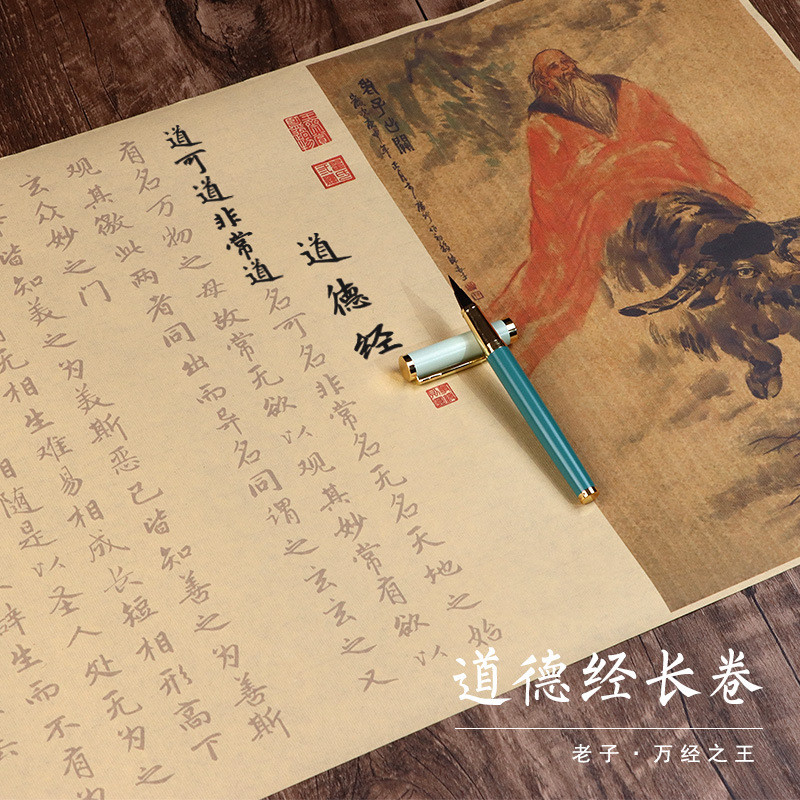 老子出關
道德经
道可道非常道名可名非常名无名天地之始
有名万物之母故常无欲以观其妙常有欲以
观其徼此两者同出而异名同谓之玄玄之又
玄众妙之门
下皆知美之为美斯恶已皆知善之为善斯
无相生难易相成长短相形高下
相随是以圣人处无为之
辞生而不有
道德经长卷
老子·万经之王